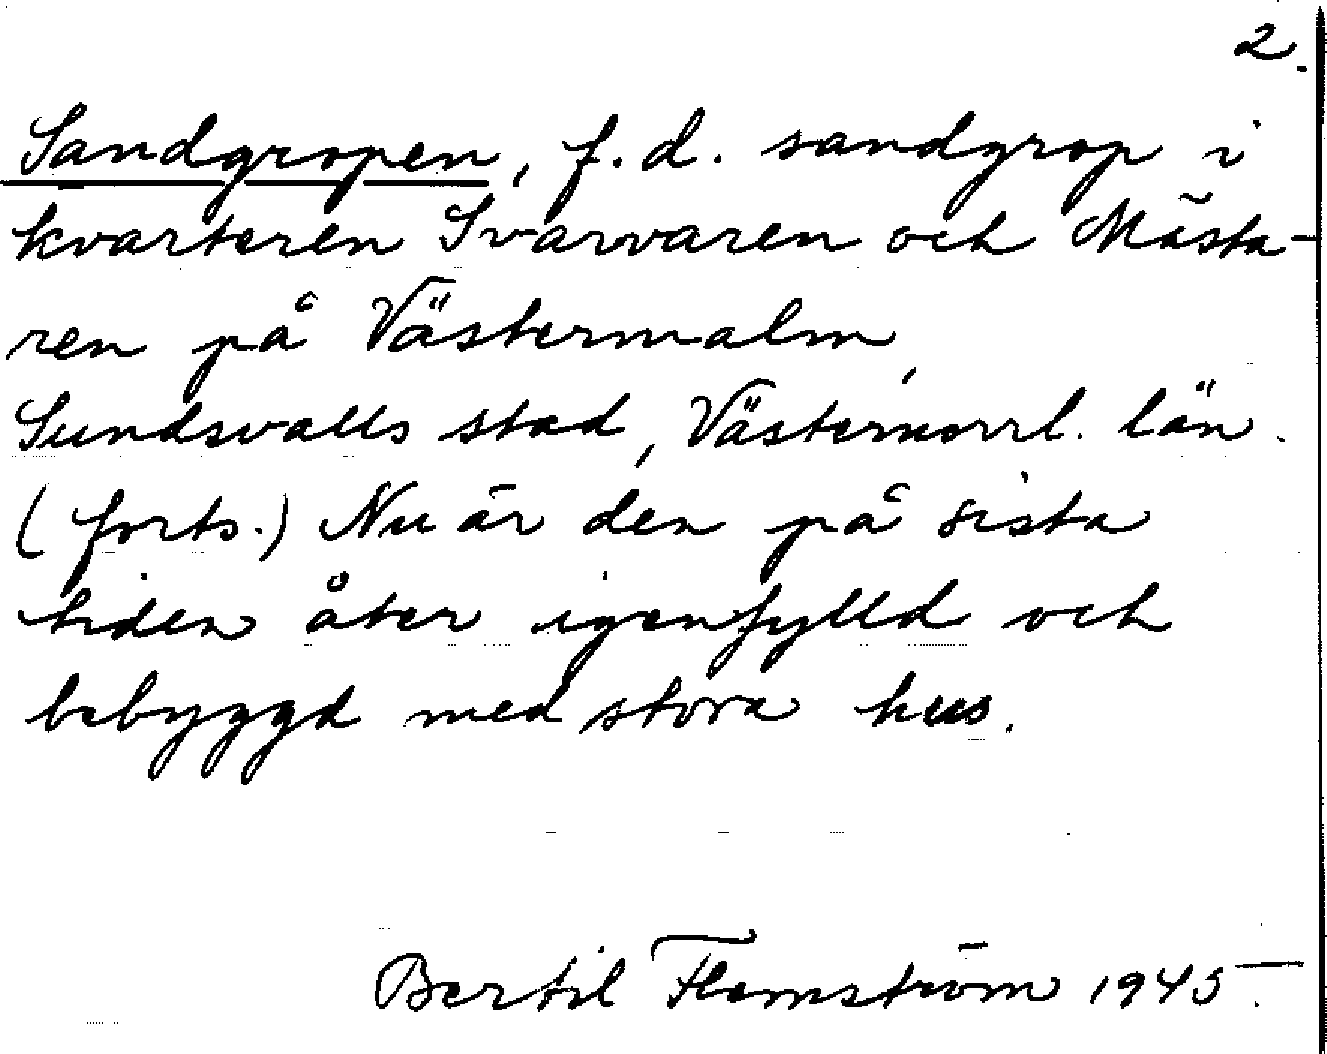 2.
Sandgropen, f.d. sandgrop i
kvarteren Svarvaren och Mästa-
ren på Västermalm,
Sundsvalls stad, Västernorrl. län.
(forts.) Nu är den på sista
tiden åter igenfylld och
bebyggd med stora hus.
Bertil Flemström 1945.